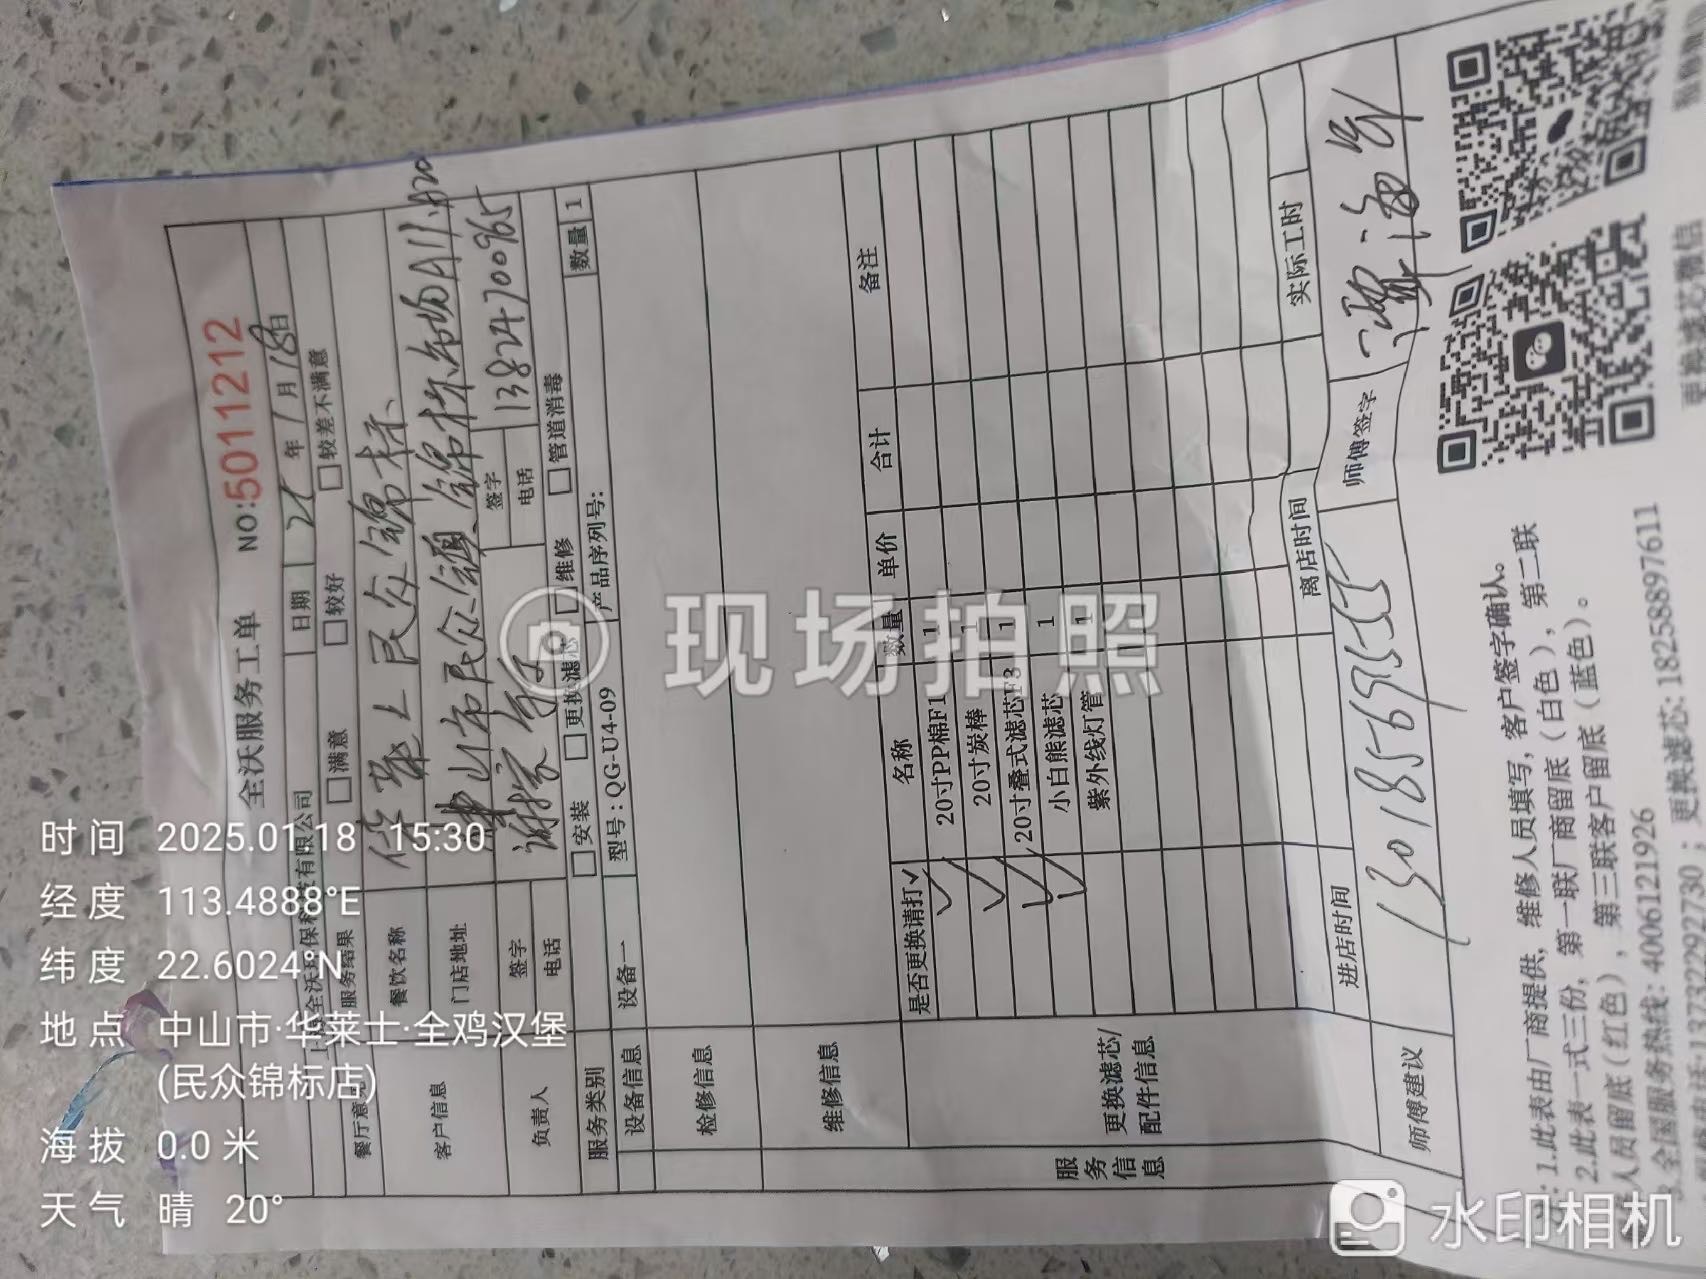 全沃服务工单 NO:5011212
上海全沃环保科技有限公司 日期 25年1月18日
餐厅意见 服务结果 满意 较好 较差不满意
客户信息 餐饮名称 华莱士民众锦标
门店地址 中山市民众镇锦标市场A11.A20
负责人 签字 签字
电话 电话 13824700965
服务类别 安装 更换滤芯 维修 管道消毒
设备信息 设备一 型号:QG-U4-09 产品序列号: 数量 1
检修信息
维修信息
服务信息
更换滤芯/配件信息
是否更换请打✓ 名称 数量 单价 合计 备注
✓ 20寸PP棉F1 1
✓ 20寸炭棒 1
✓ 20寸叠式滤芯F3 1
✓ 小白熊滤芯 1
紫外线灯管 1
进店时间 离店时间 实际工时
师傅建议 13018569555 师傅签字
注:1.此表由厂商提供,维修人员填写,客户签字确认。
2.此表一式三份,第一联厂商留底(白色),第二联
人员留底(红色),第三联客户留底(蓝色)。
3.全国服务热线:4006121926
13732292730;更换滤芯:18258897611
更换滤芯微信
现场拍照
时间 2025.01.18 15:30
经度 113.4888°E
纬度 22.6024°N
地点 中山市·华莱士·全鸡汉堡
(民众锦标店)
海拔 0.0米
天气 晴 20°
水印相机